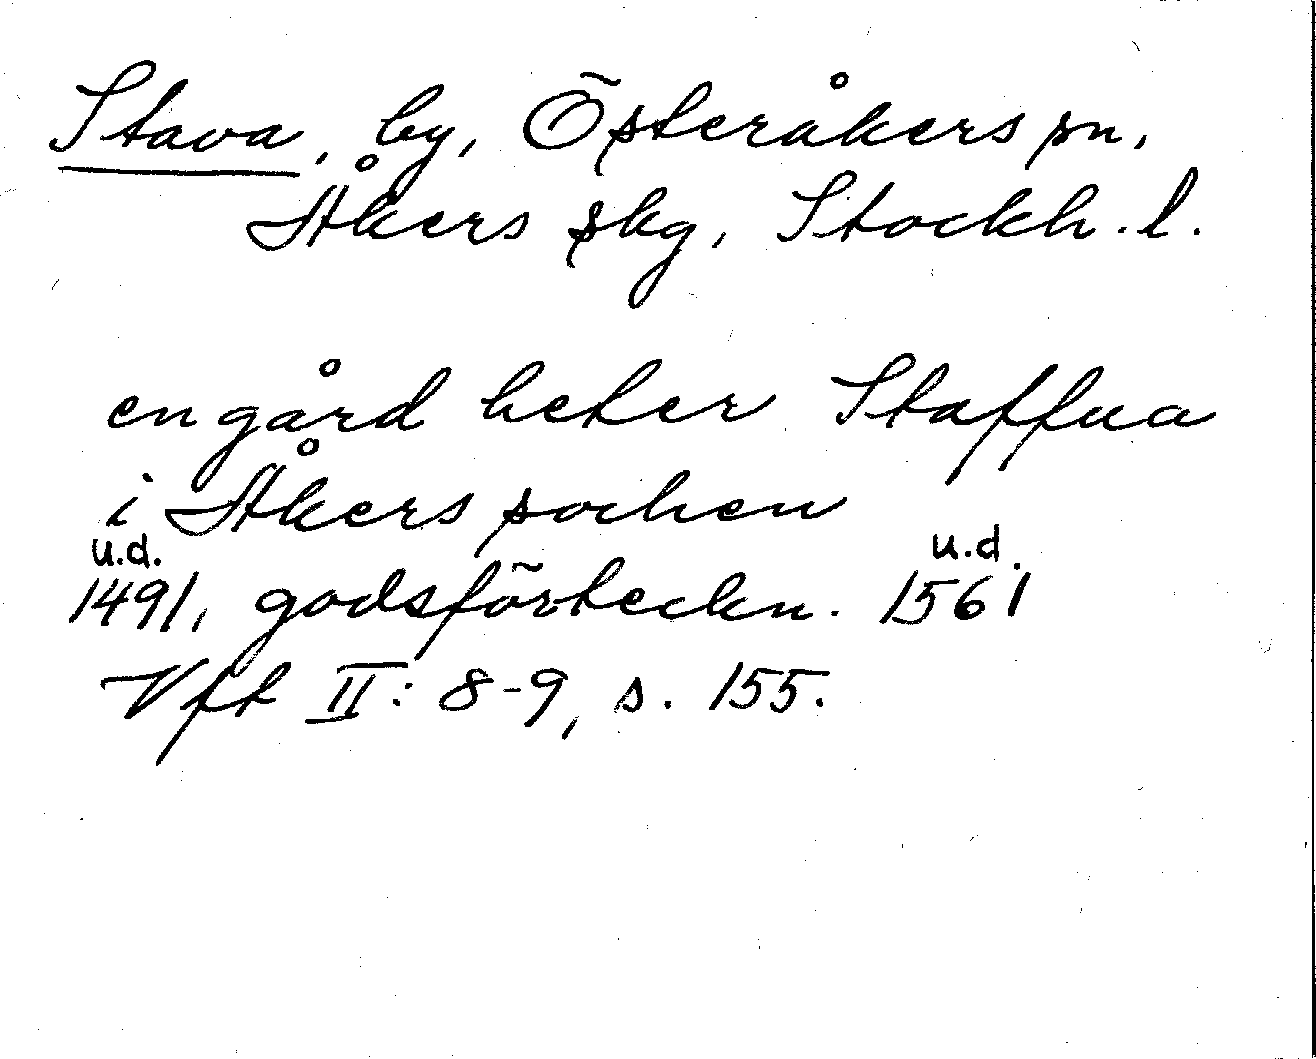 Stava, by, Österåkers sn,
Åkers skg, Stockh. l.
en gård heter Staffua
i Åkers sochen
u.d. u.d.
1491, godsförteckn. 1561
Vft II: 8-9, s. 155.